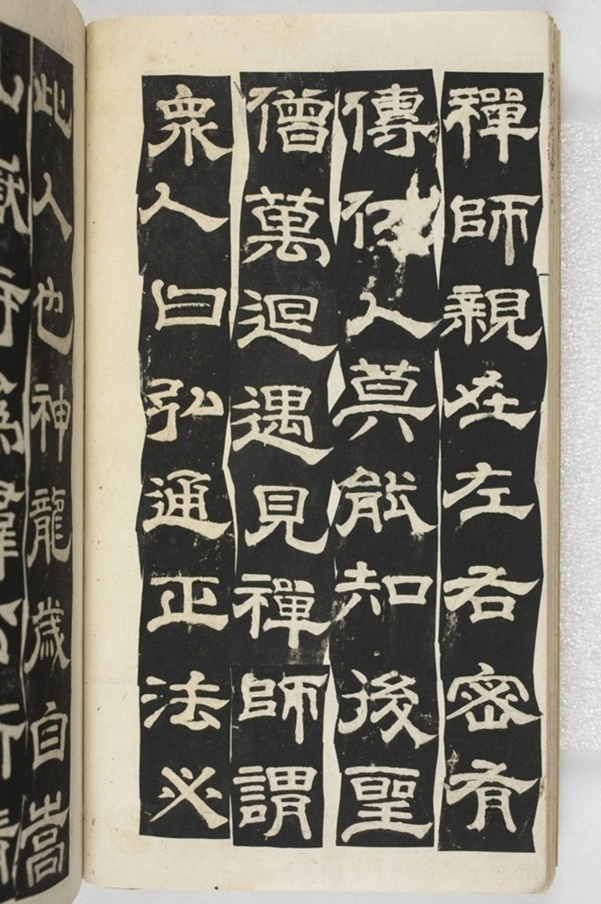 禪師親在左右密有
傳付人莫能知後聖
僧萬迴遇見禪師謂
衆人曰弘通正法必
此人也神龍歲自嵩